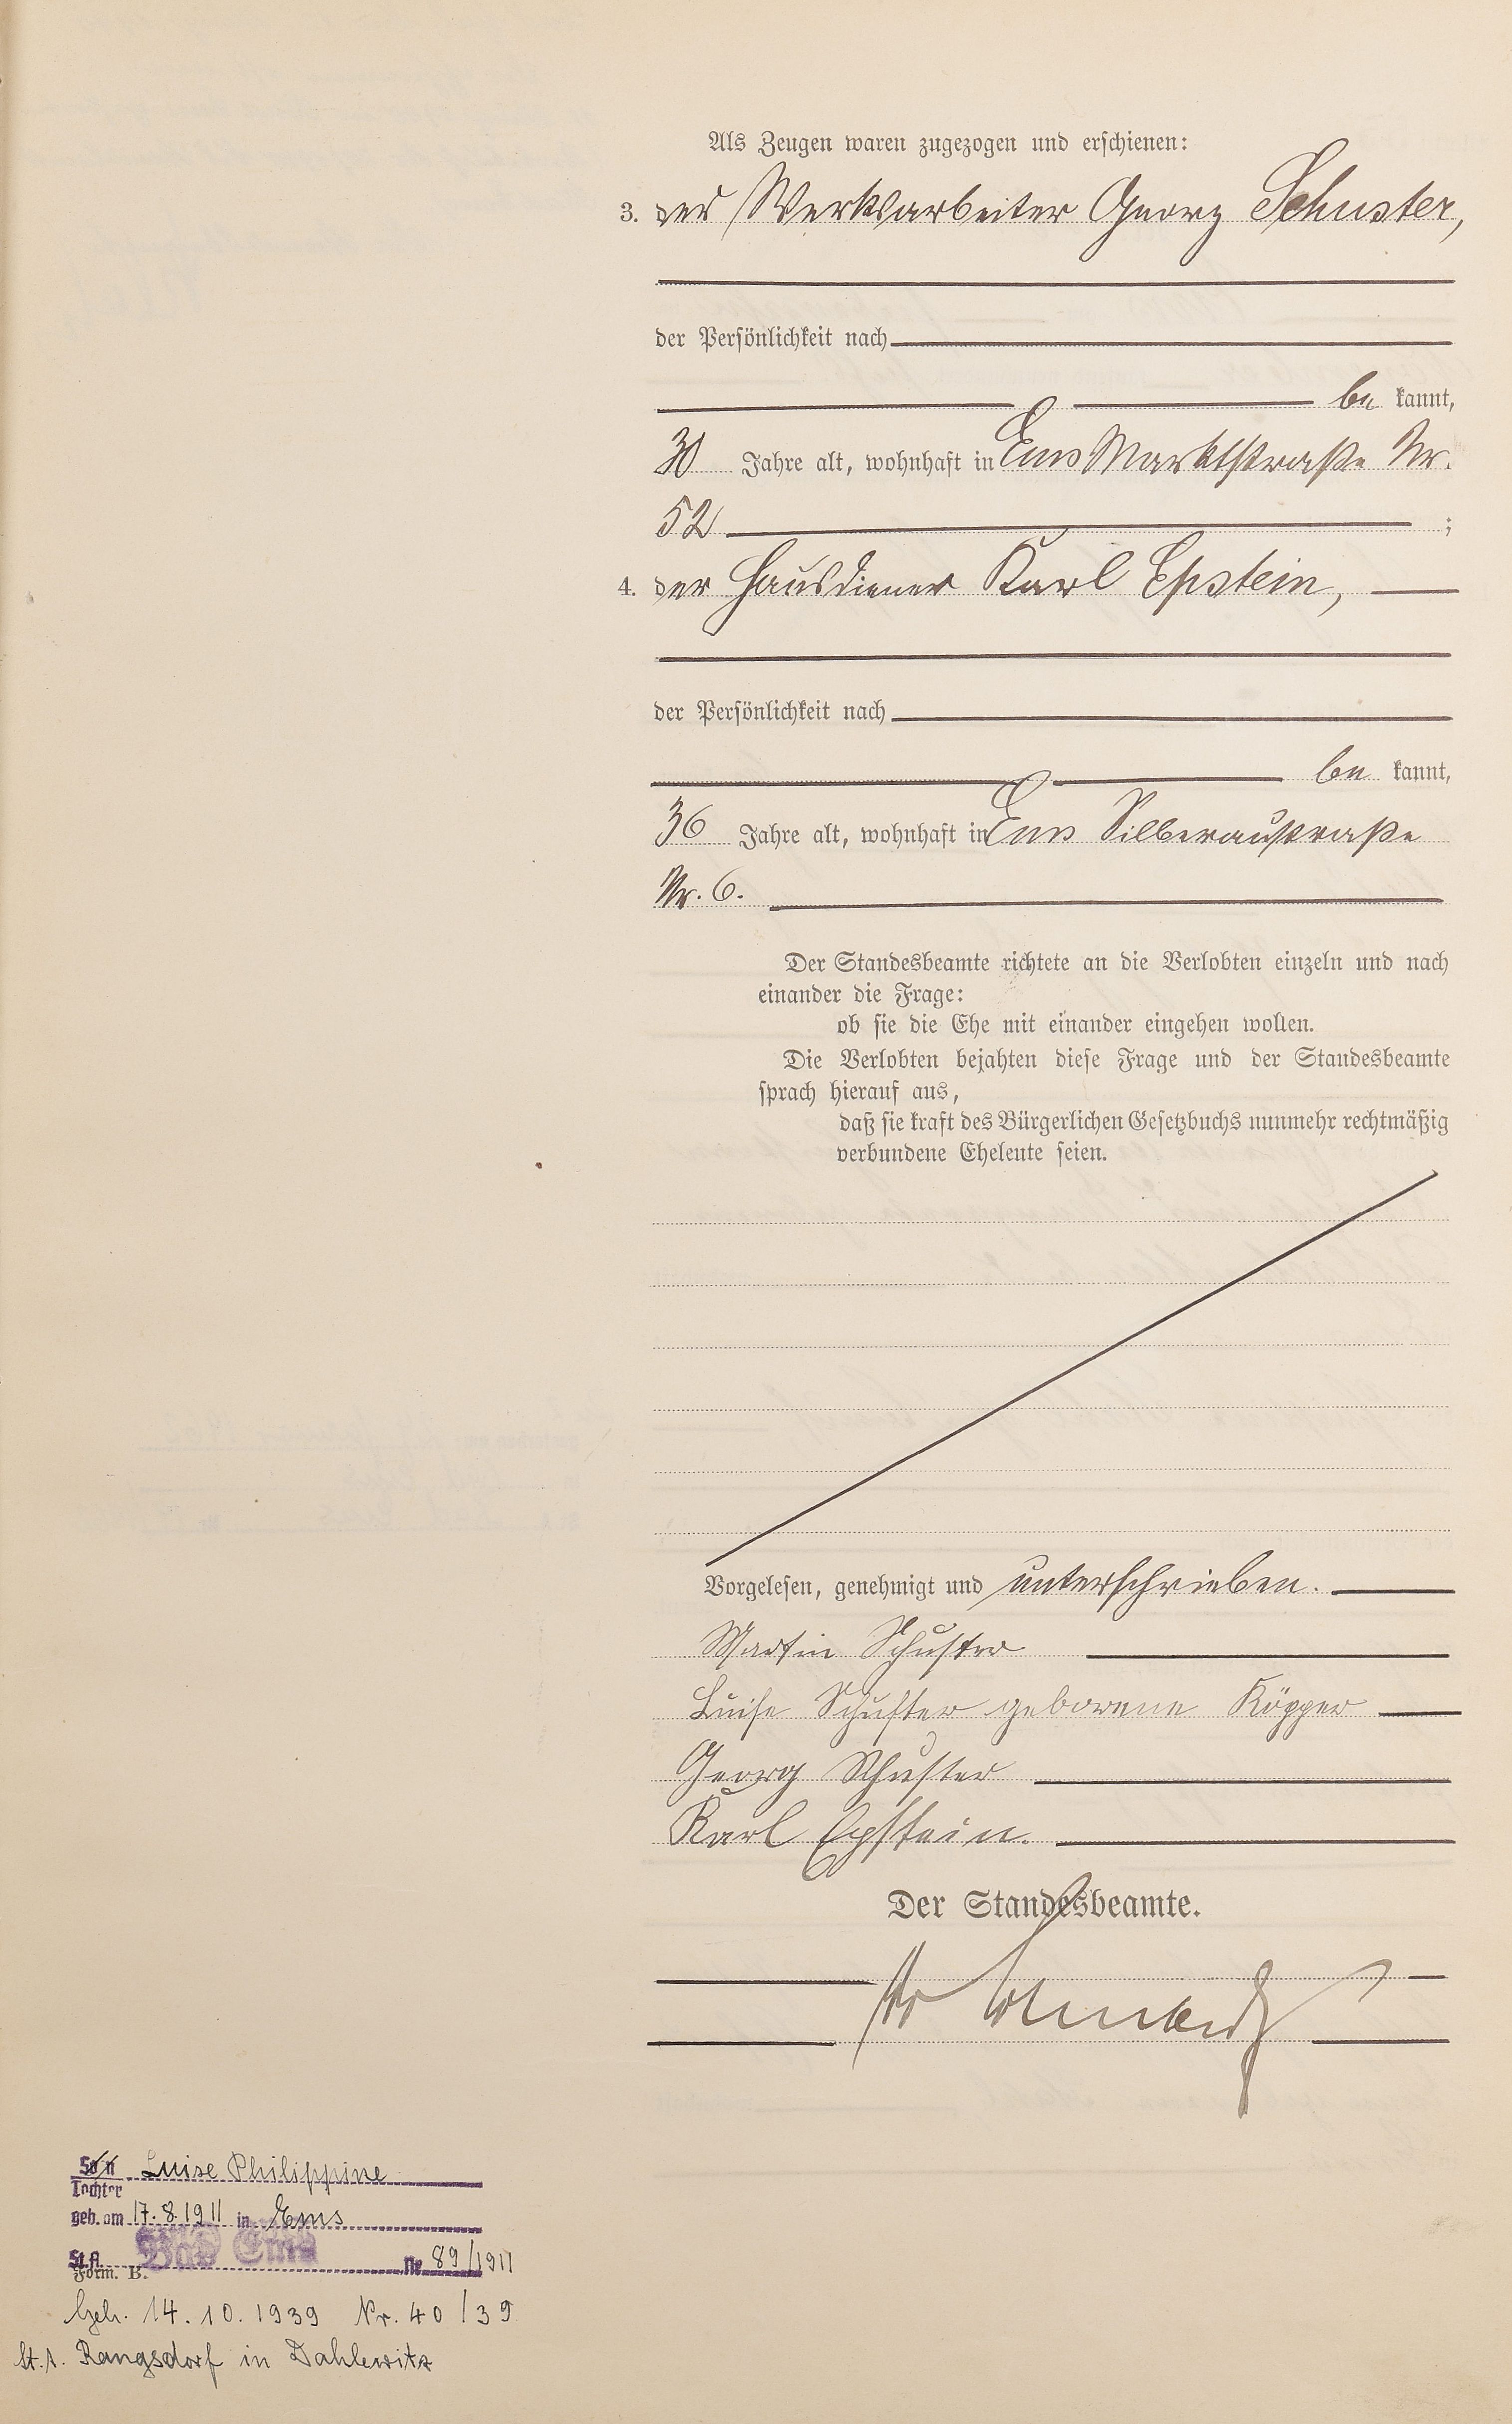 Als Zeugen waren zugezogen und erschienen:
3. der Werksarbeiter Georg Schuster,
der Persönlichkeit nach
be kannt,
30 Jahre alt, wohnhaft in Ems Marktstraße Nr.
52 ;
4. der Hausdiener Karl Epstein,
der Persönlichkeit nach
be kannt,
36 Jahre alt, wohnhaft in Ems Silberaustraße
Nr. 6.
Der Standesbeamte richtete an die Verlobten einzeln und nach
einander die Frage:
ob sie die Ehe mit einander eingehen wollen.
Die Verlobten bejahten diese Frage und der Standesbeamte
sprach hierauf aus,
daß sie kraft des Bürgerlichen Gesetzbuchs nunmehr rechtmäßig
verbundene Eheleute seien.
Vorgelesen, genehmigt und unterschrieben.
Martin Schuster
Luise Schuster geborene Köpper
Georg Schuster
Karl Epstein.
Der Standesbeamte.
Sohn Luise Philippine
Tochter
geb. am 17.8.1911 in Ems
St.A. Bad Ems Nr. 89/1911
Form. B.
Geh. 14.10.1939 Nr. 40/39
St.A. Rangsdorf in Dahlewitz